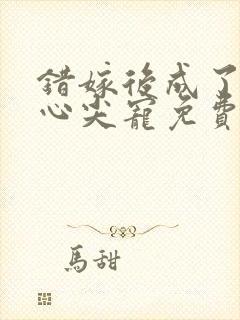 錯嫁後成了
心尖寵免費
馬甜